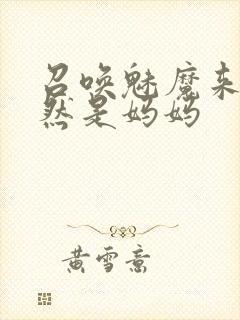 召唤魅魔来
然是妈妈
黄雪意